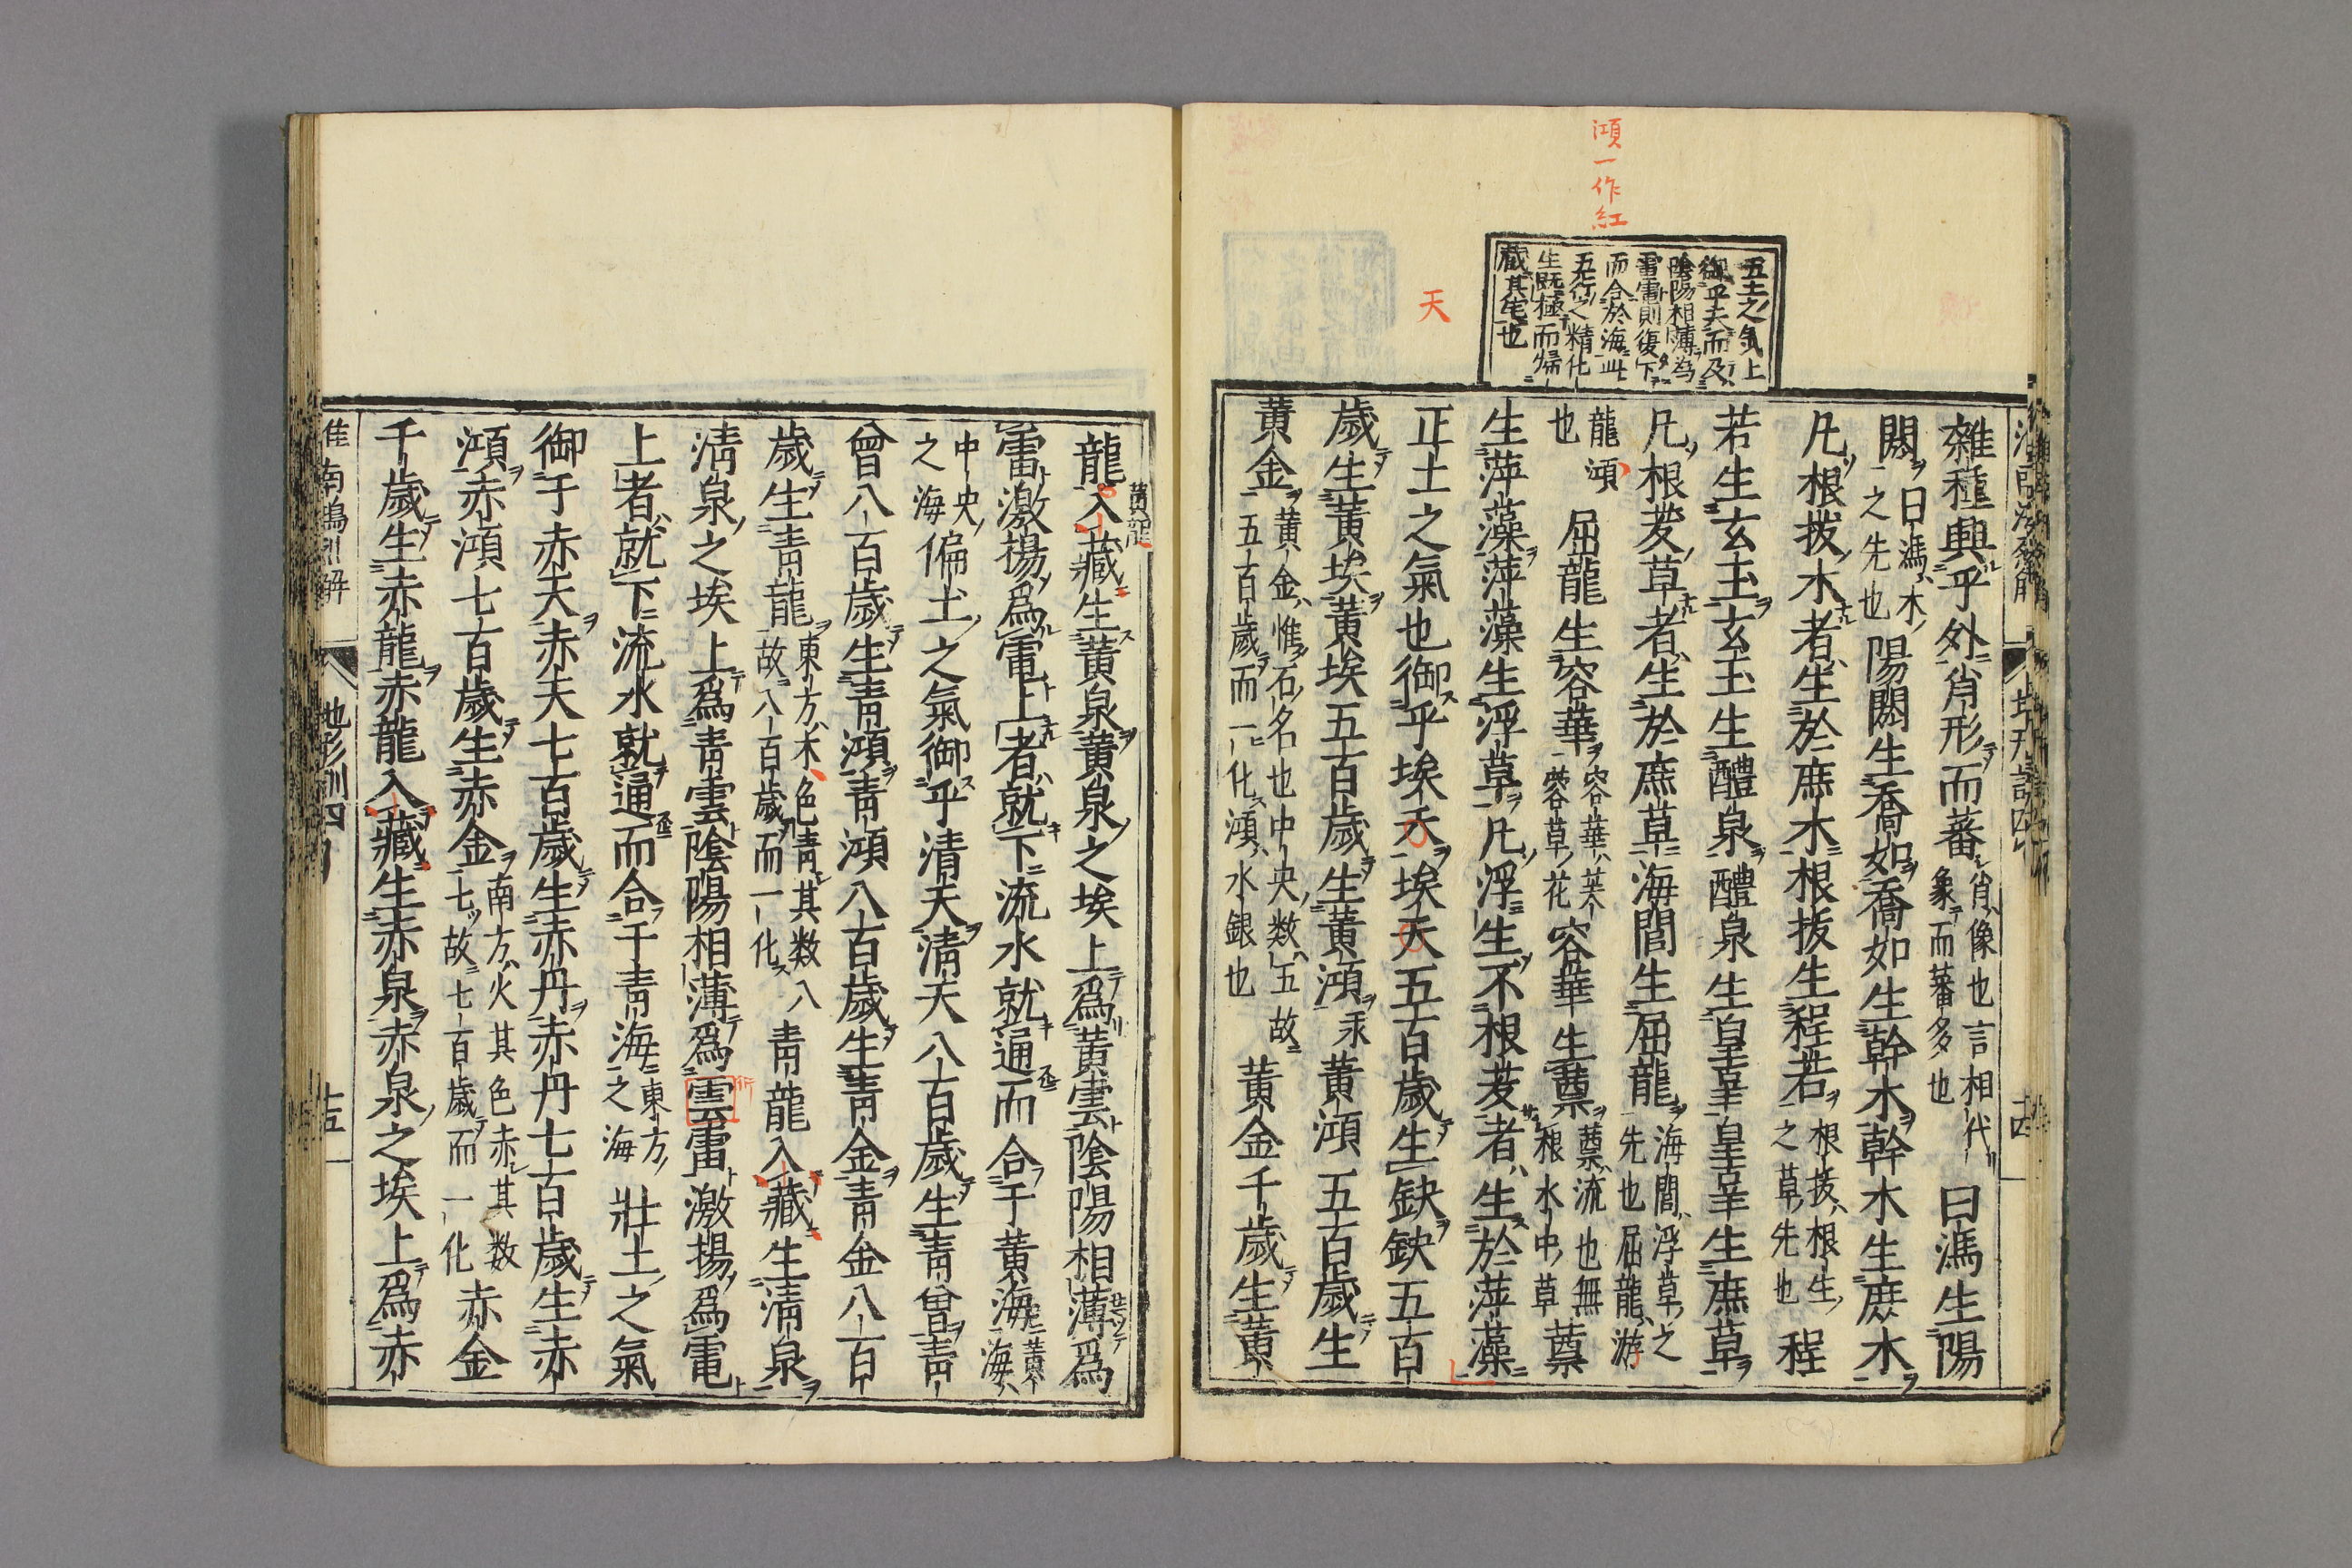 澒一作紅
天
五土之氣上
御乎天而及
陰陽相薄為
雷電則復下
而合於海此
五行之精化
生既極而帰
蔵其宅也
雜種興乎外肖形而蕃肖像也言相代
象而蕃多也曰馮生陽
閼曰馮木
之先也陽閼生喬如喬如生幹木幹木生庶木
凡根拔木者生於庶木根拔生程若根拔根生
之草先也程
若生玄玉玄玉生醴泉醴泉生皇辜皇辜生庶草
凡根茇草者生於庶草海閭生屈龍海閭浮草之
先也屈龍游
龍澒
也屈龍生容華容華芙
蓉草花容華生蔈蔈流也無
根水中草蔈
生萍藻萍藻生浮草凡浮生不根茇者生於萍藻
正土之氣也御乎埃天埃天五百歲生缺缺五百
歲生黃埃黃埃五百歲生黃澒汞黃澒五百歲生
黃金黃金惟石名也中央数五故
五百歲而一化澒水銀也黃金千歲生黃
龍入藏生黃泉黃泉之埃上爲黃雲陰陽相薄爲
黃龍
雷激揚爲電上者就下流水就通而合于黃海黃海
中央
之海偏土之氣御乎清天清天八百歲生青曾青
曾八百歲生青澒青澒八百歲生青金青金八百
歲生青龍東方木色青其数八
故八百歲而一化青龍入藏生清泉
清泉之埃上爲青雲陰陽相薄爲雲雷激揚爲電
衍
上者就下流水就通而合于青海東方
之海壯土之氣
御于赤天赤天七百歲生赤丹赤丹七百歲生赤
澒赤澒七百歲生赤金南方火其色赤其数
七故七百歲而一化赤金
千歲生赤龍赤龍入藏生赤泉赤泉之埃上爲赤
地形訓四